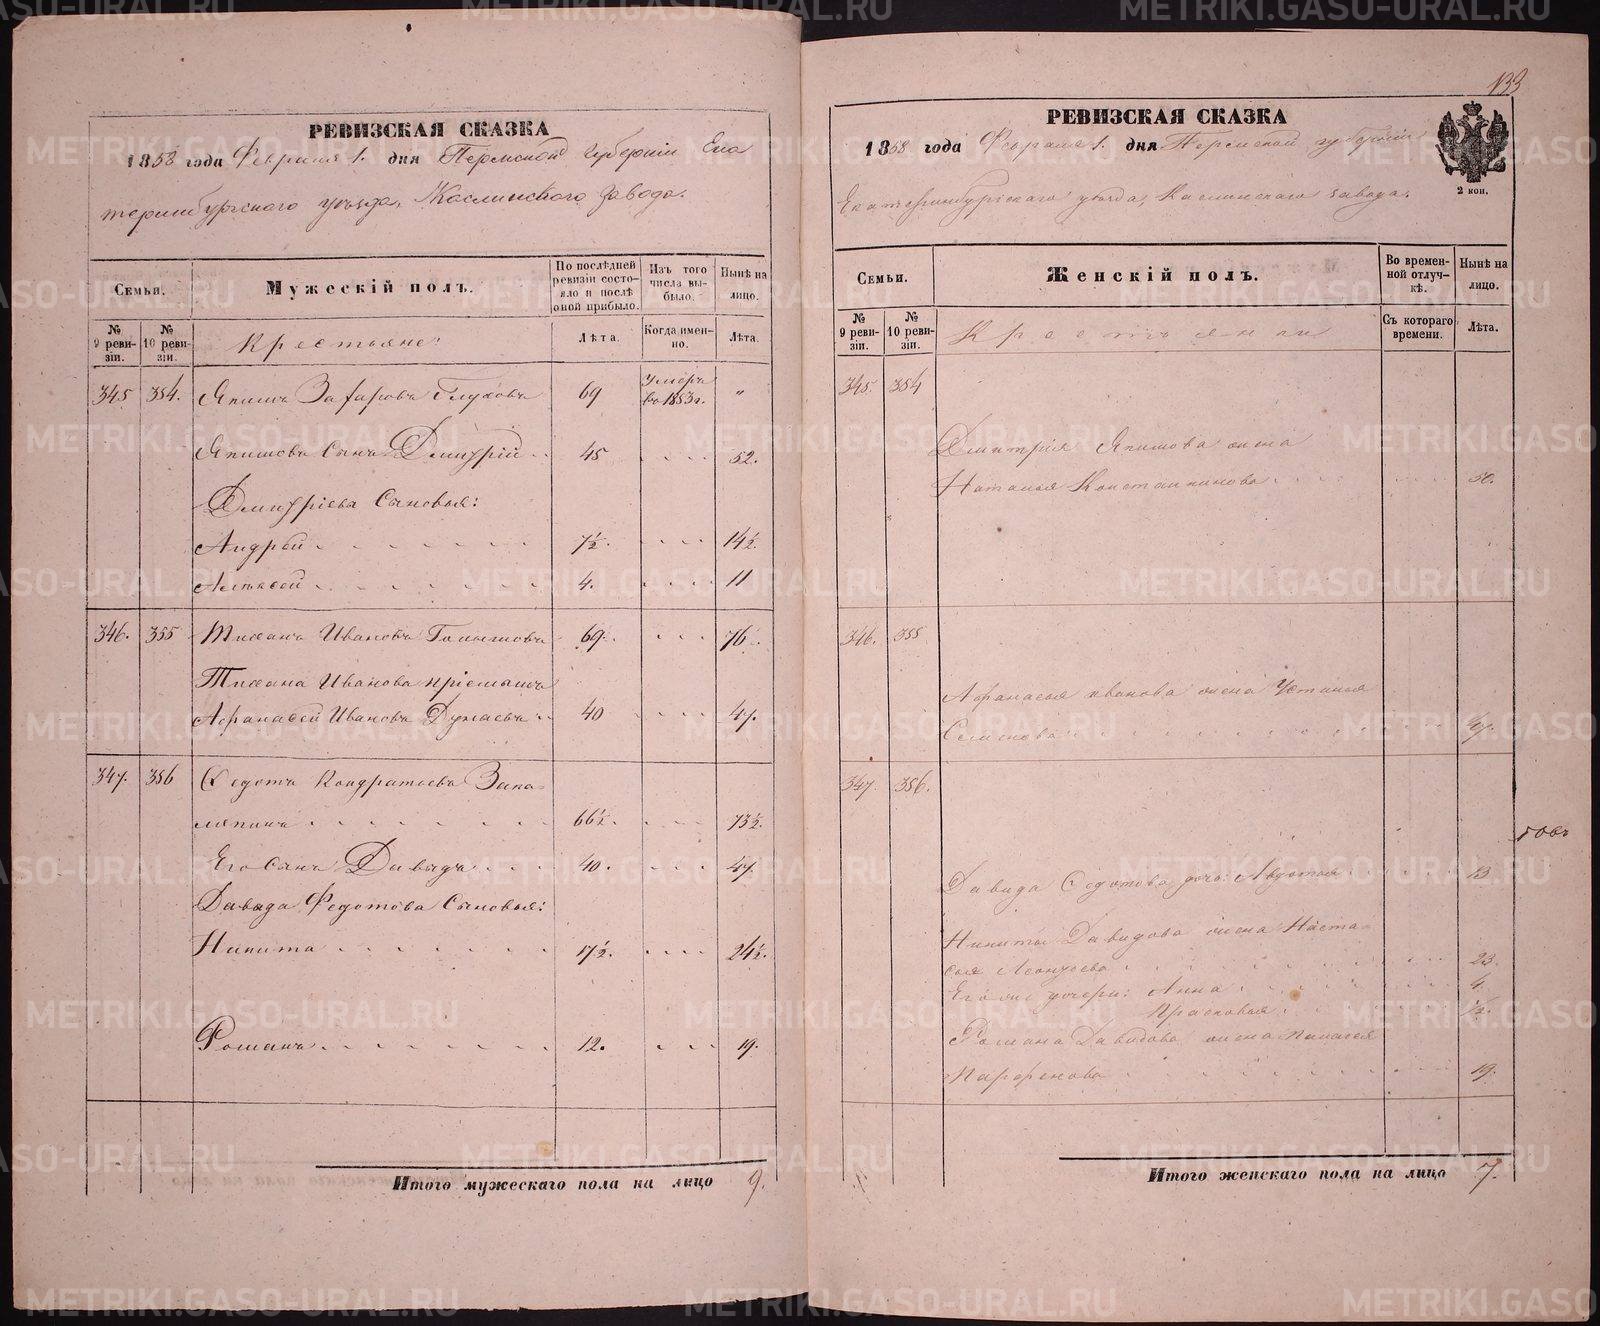 РЕВИЗСКАЯ СКАЗКА
1858 года Февраля 1. дня Пермской губернiи Ека
теринбургского уѣзда, Каслинского завода.
Семьи.
Мужескiй полъ.
По послѣдней ревизiи состояло и послѣ оной прибыло.
Изъ того числа выбыло.
Нынѣ на лицо.
№ 9 ревизiи.
№ 10 ревизiи.
Крестьяне:
Лѣта.
Когда именно.
Лѣта.
345 354. Якимъ Захаровъ Глуховъ 69 Умеръ въ 1853 г. "
Якимовъ Сынъ Дмитрiй 45 52.
Дмитрiева Сыновья:
Андрей 7½. 14½.
Алексей 4. 11
346. 355 Тиханъ Ивановъ 69. 76
Тихана Иванова прiемышъ
Афанасей Ивановъ Дунаевъ 40 47.
347. 356 Федотъ Кондратьевъ Зака-
ляпинъ 66½. 73½.
Его Сынъ Давыдъ 40. 47.
Давыда Федотова Сыновья:
Никита 17½. 24½.
Романъ 12. 19.
Итого мужескаго пола на лицо 9.
133
РЕВИЗСКАЯ СКАЗКА
1858. года Февраля 1. дня Пермской губернiи
Екатеринбургскаго уѣзда, Каслинскаго завода.
2 коп.
Семьи.
Женскiй полъ.
Во временной отлучкѣ.
Нынѣ на лицо.
№ 9 ревизiи.
№ 10 ревизiи.
Крестьянки
Съ котораго времени.
Лѣта.
345. 354
Дмитрiя Якимова жена
Наталья Константинова 50.
346. 355
Афанасья Иванова жена Устинья
Семенова 47.
347. 356.
Давида Федотова дочь: Авдотья 13
Никиты Давидова жена Наста-
сья Леонтьева 23.
Его же дочери: Анна 4.
Прасковья ½.
Романа Давидова жена Палагея
Парфенова 19.
Итого женскаго пола на лицо 7.
METRIKI.GASO-URAL.RU